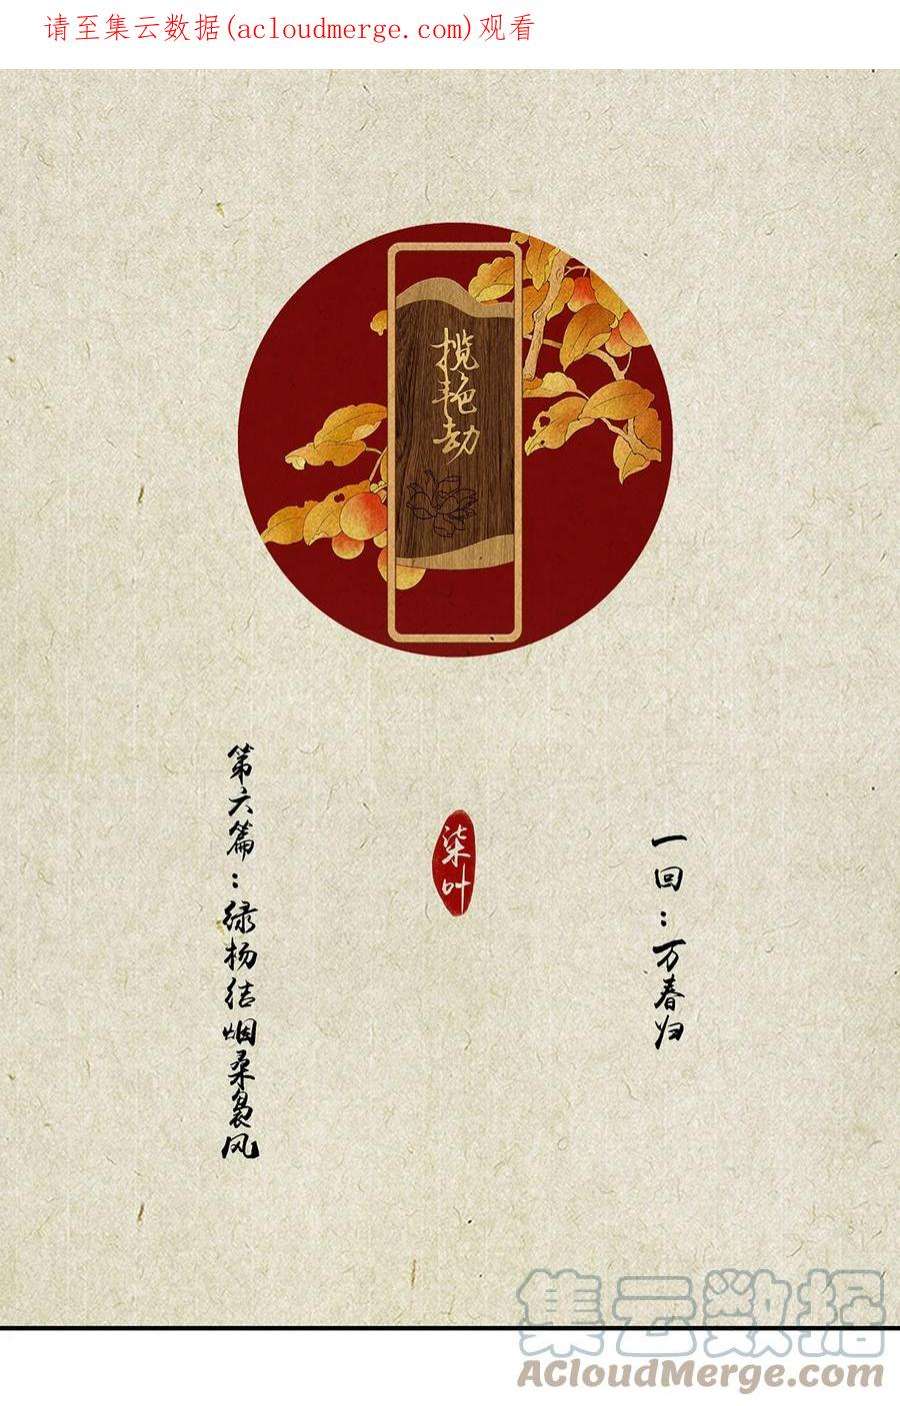 请至集云数据(acloudmerge.com)观看
揽艳劫
一回：万春归
柒叶
第六篇：绿杨结烟桑袅风
集云数据
ACloudMerge.com